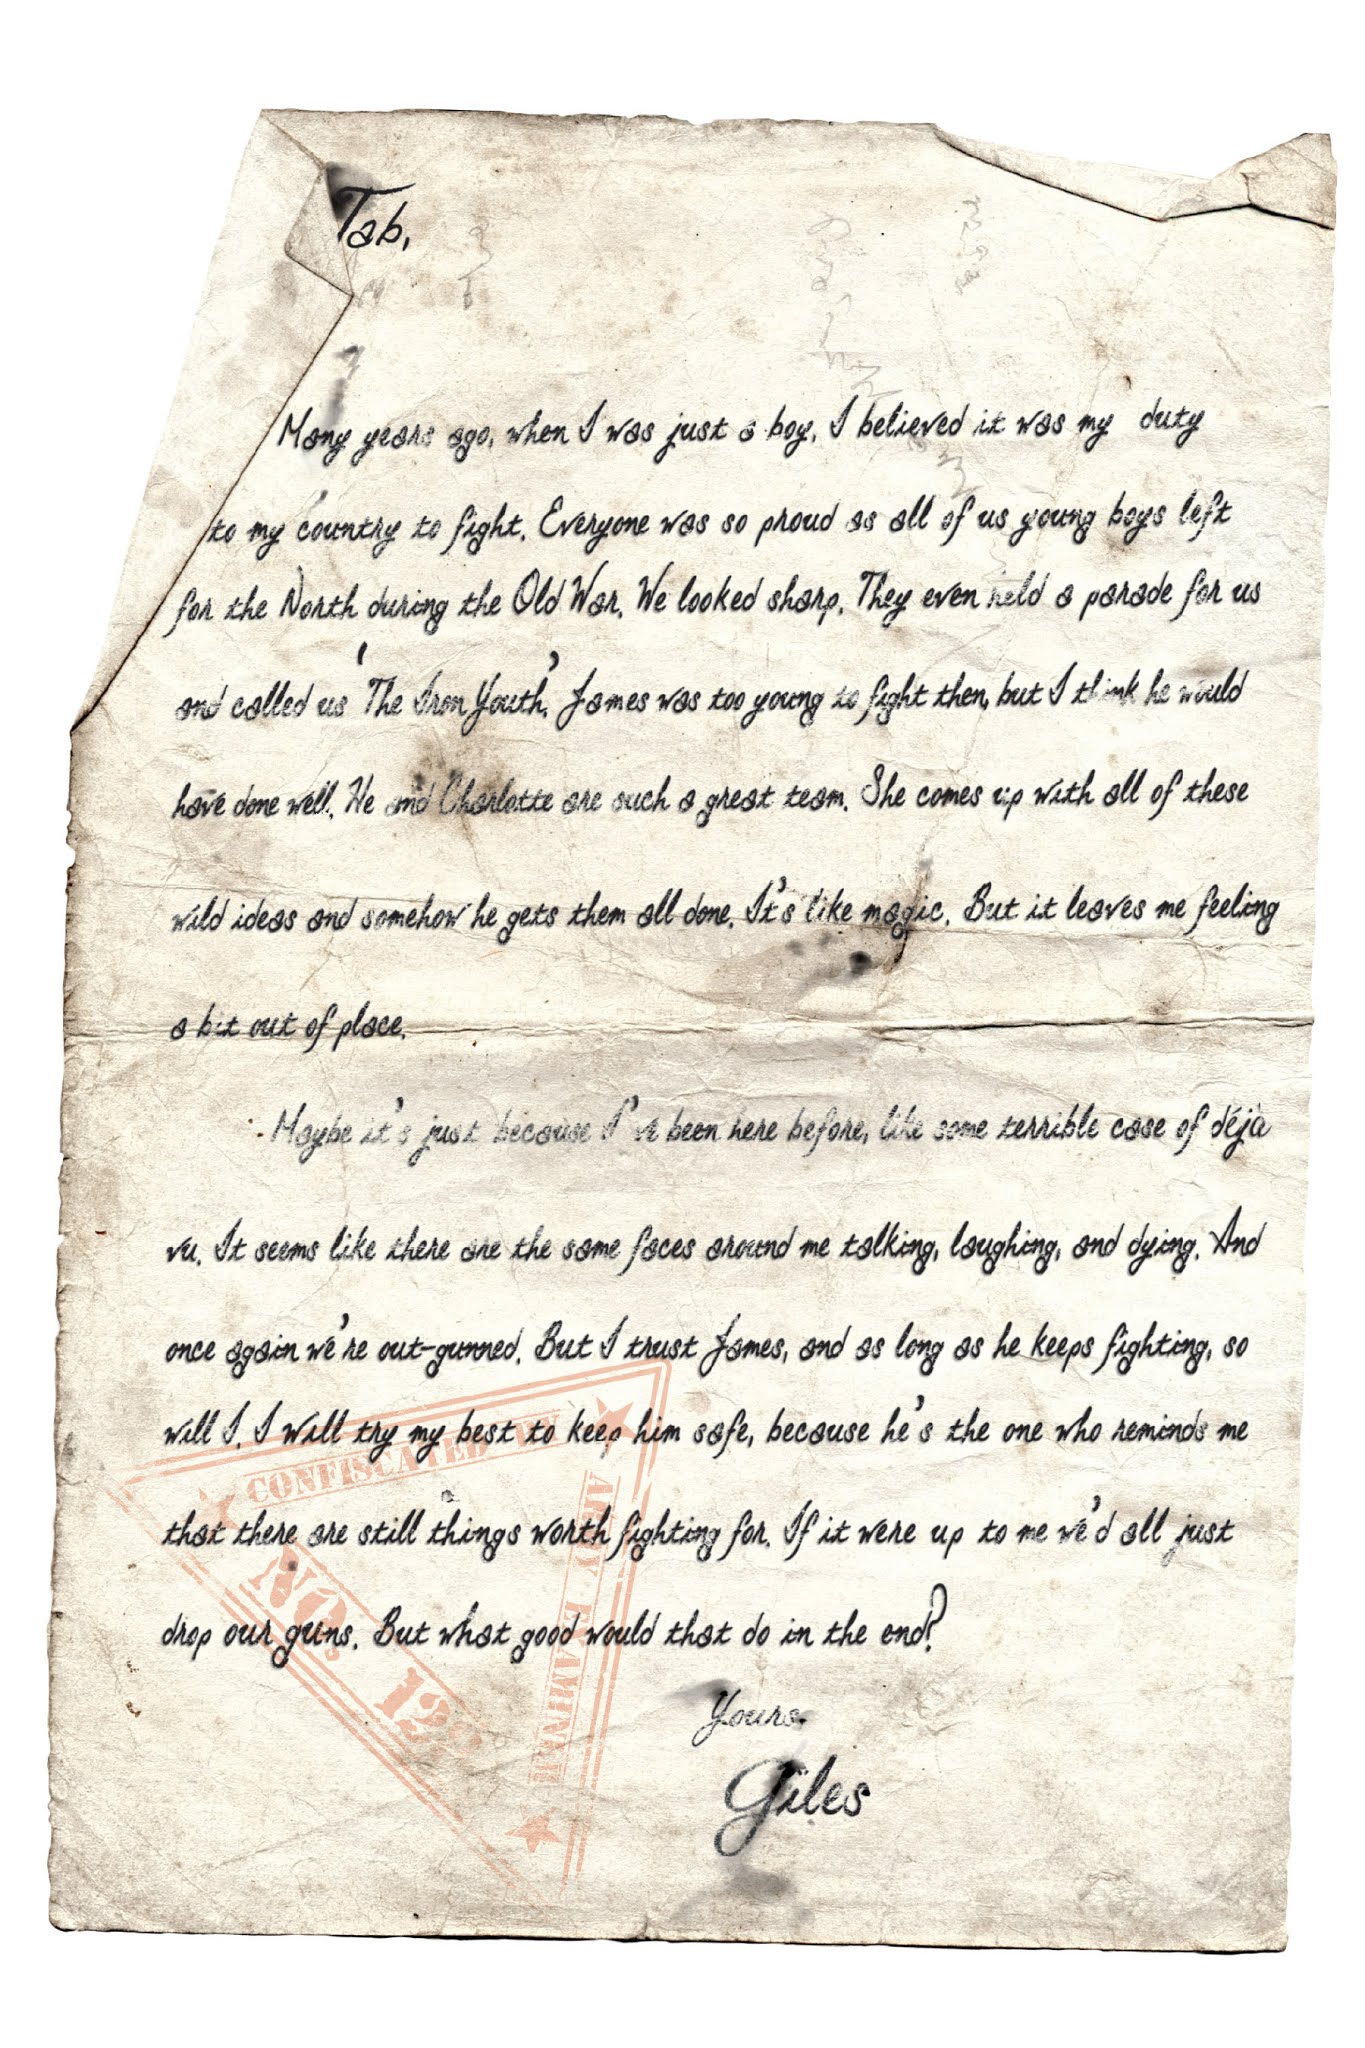 Tab,
Many years ago, when I was just a boy, I believed it was my duty
to my country to fight. Everyone was so proud as all of us young boys left
for the North during the Old War. We looked sharp. They even held a parade for us
and called us 'The Iron Youth'. James was too young to fight then, but I think he would
have done well. He and Charlotte are such a great team. She comes up with all of these
wild ideas and somehow he gets them all done. It's like magic. But it leaves me feeling
a bit out of place.
Maybe it's just because I've been here before, like some terrible case of déjà
vu. It seems like there are the same faces around me talking, laughing, and dying. And
once again we're out-gunned. But I trust James, and as long as he keeps fighting, so
will I. I will try my best to keep him safe, because he's the one who reminds me
that there are still things worth fighting for. If it were up to me we'd all just
drop our guns. But what good would that do in the end?
Yours,
Giles
CONFISCATED BY
ARMY EXAMINER
NO.